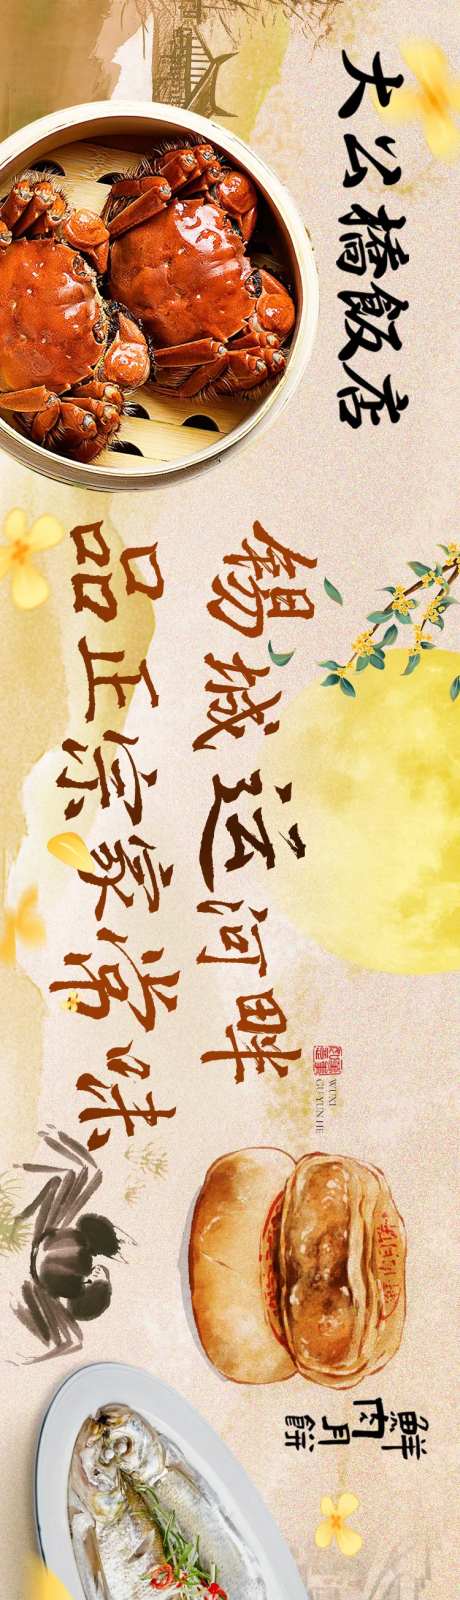 大公橋飯店
錫城运河畔
品正宗家常味
WUXI
GU YUN HE
鮮肉月餅